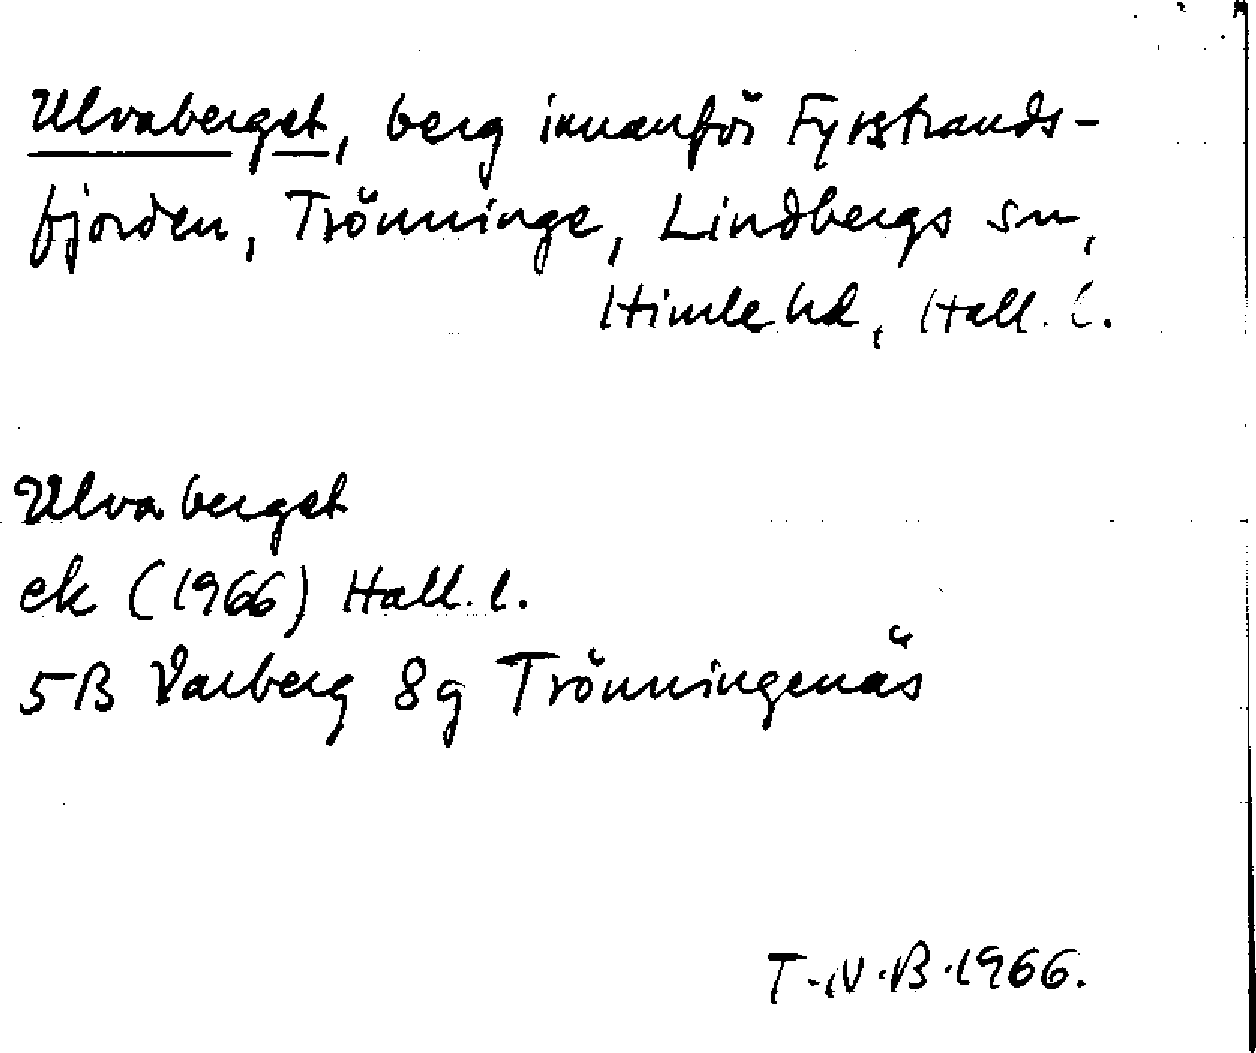 Ulvaberget, berg innanför Fyrstrands-
fjorden, Trönninge, Lindbergs sn,
Himle hd, Hall. l.
Ulvaberget
ek (1966) Hall. l.
5B Varberg 8g Trönningenäs
T.N.B.1966.